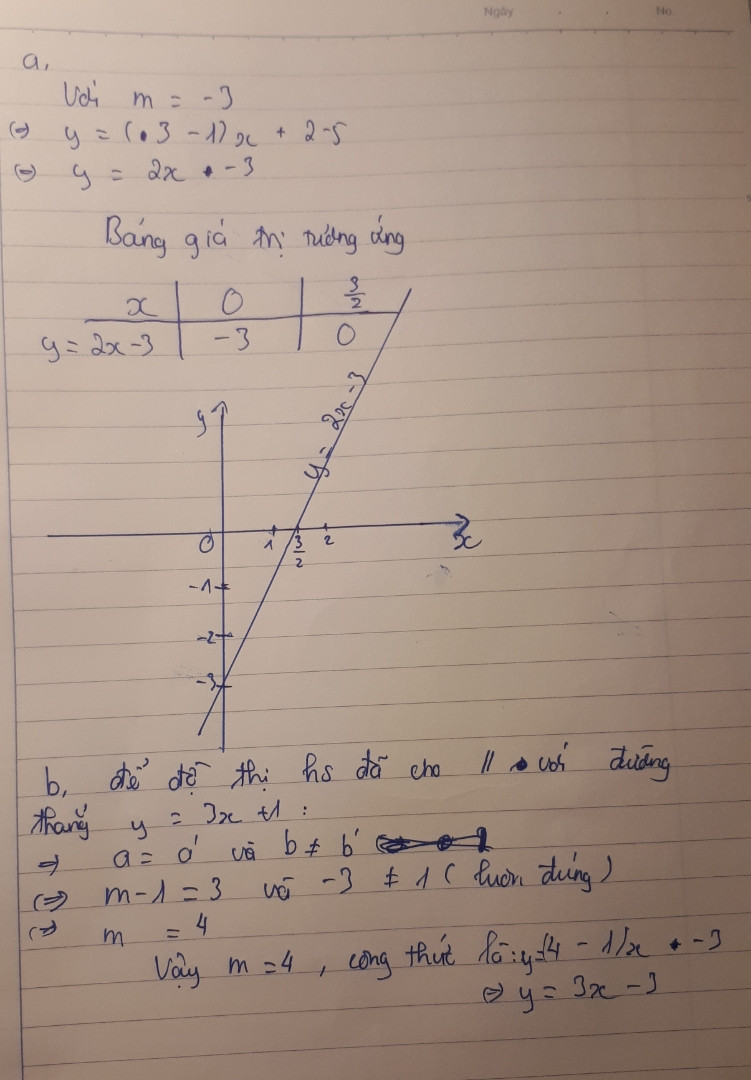 Ngày . . No.
a,
Với m = -3
(=) y = (3 - 1)x + 2-5
(=) y = 2x -3
Bảng giá trị tương ứng
x 0 3/2
y = 2x-3 -3 0
y = 2x-3
y
0 1 3/2 2 x
-1
-2
-3
b, để đồ thị hs đã cho // với đường
thẳng y = 3x +1 :
=> a = a' và b ≠ b'
(=> m-1 = 3 và -3 ≠ 1 ( luôn đúng )
(=> m = 4
Vậy m = 4 , công thức là : y=(4 - 1)x -3
(=) y = 3x - 3